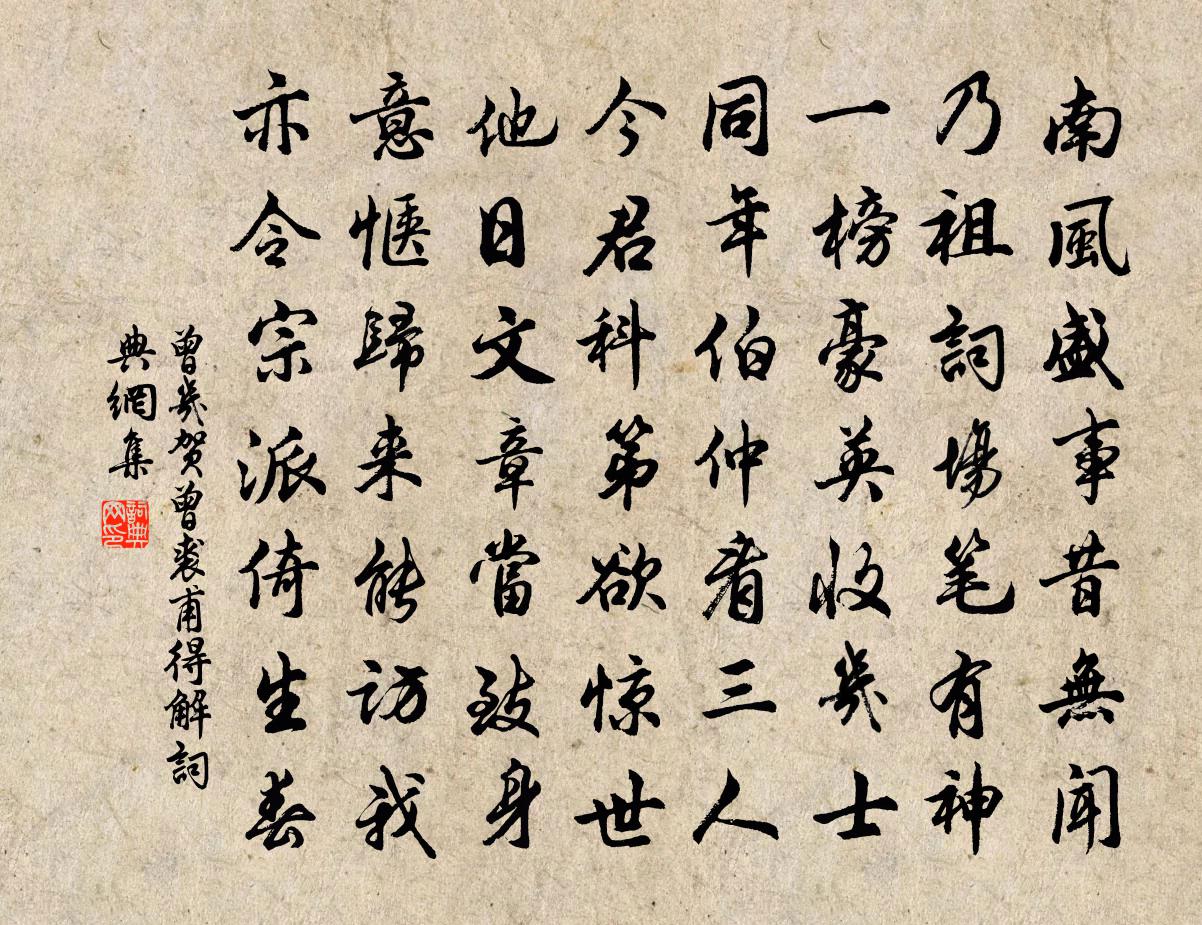 南風盛事昔無聞
乃祖詞場笔有神
一榜豪英收幾士
同年伯仲看三人
今君科第欲惊世
他日文章當致身
意愜歸来能訪我
亦令宗派倚生春
曾幾贺曾裘甫得解詞
典網集
詞典
网印